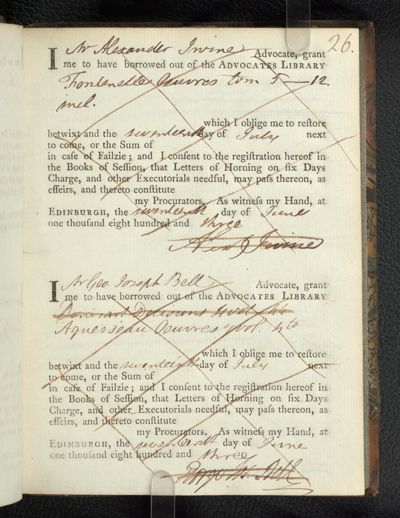 26.
I Mr Alexander Irvine Advocate, grant
me to have borrowed out of the ADVOCATES LIBRARY
Fontenelle Oeuvres tom 5—12
incl.
which I oblige me to reſtore
betwixt and the seventeenth day of July next
to come, or the Sum of
in caſe of Failzie; and I conſent to the regiſtration hereof in
the Books of Seſſion, that Letters of Horning on ſix Days
Charge, and other Executorials needful, may paſs thereon, as
effeirs, and thereto conſtitute
my Procurators. As witneſs my Hand, at
EDINBURGH, the seventeenth day of June
one thouſand eight hundred and three
Alexr Irvine
I Mr Geo. Joseph Bell Advocate, grant
me to have borrowed out of the ADVOCATES LIBRARY
Aguesseau Oeuvres 9 vol. 4to
which I oblige me to reſtore
betwixt and the seventeenth day of July next
to come, or the Sum of
in caſe of Failzie; and I conſent to the regiſtration hereof in
the Books of Seſſion, that Letters of Horning on ſix Days
Charge, and other Executorials needful, may paſs thereon, as
effeirs, and thereto conſtitute
my Procurators. As witneſs my Hand, at
EDINBURGH, the seventeenth day of June
one thouſand eight hundred and three
Bell